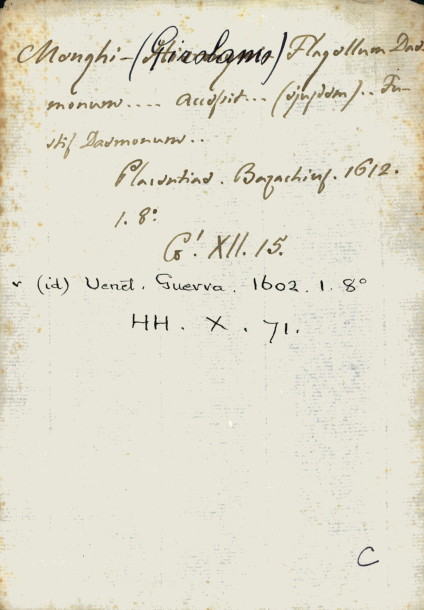 Menghi - (Girolamo) Flagellum Dae-
monum .... accessit .. (ejusdem) .. Fu-
stis Daemonum ..
Placentiae . Bazachius . 1612.
1. 8º
G! XII. 15.
(id) Venet. Guerra . 1602. 1. 8º
HH . X . 71.
C